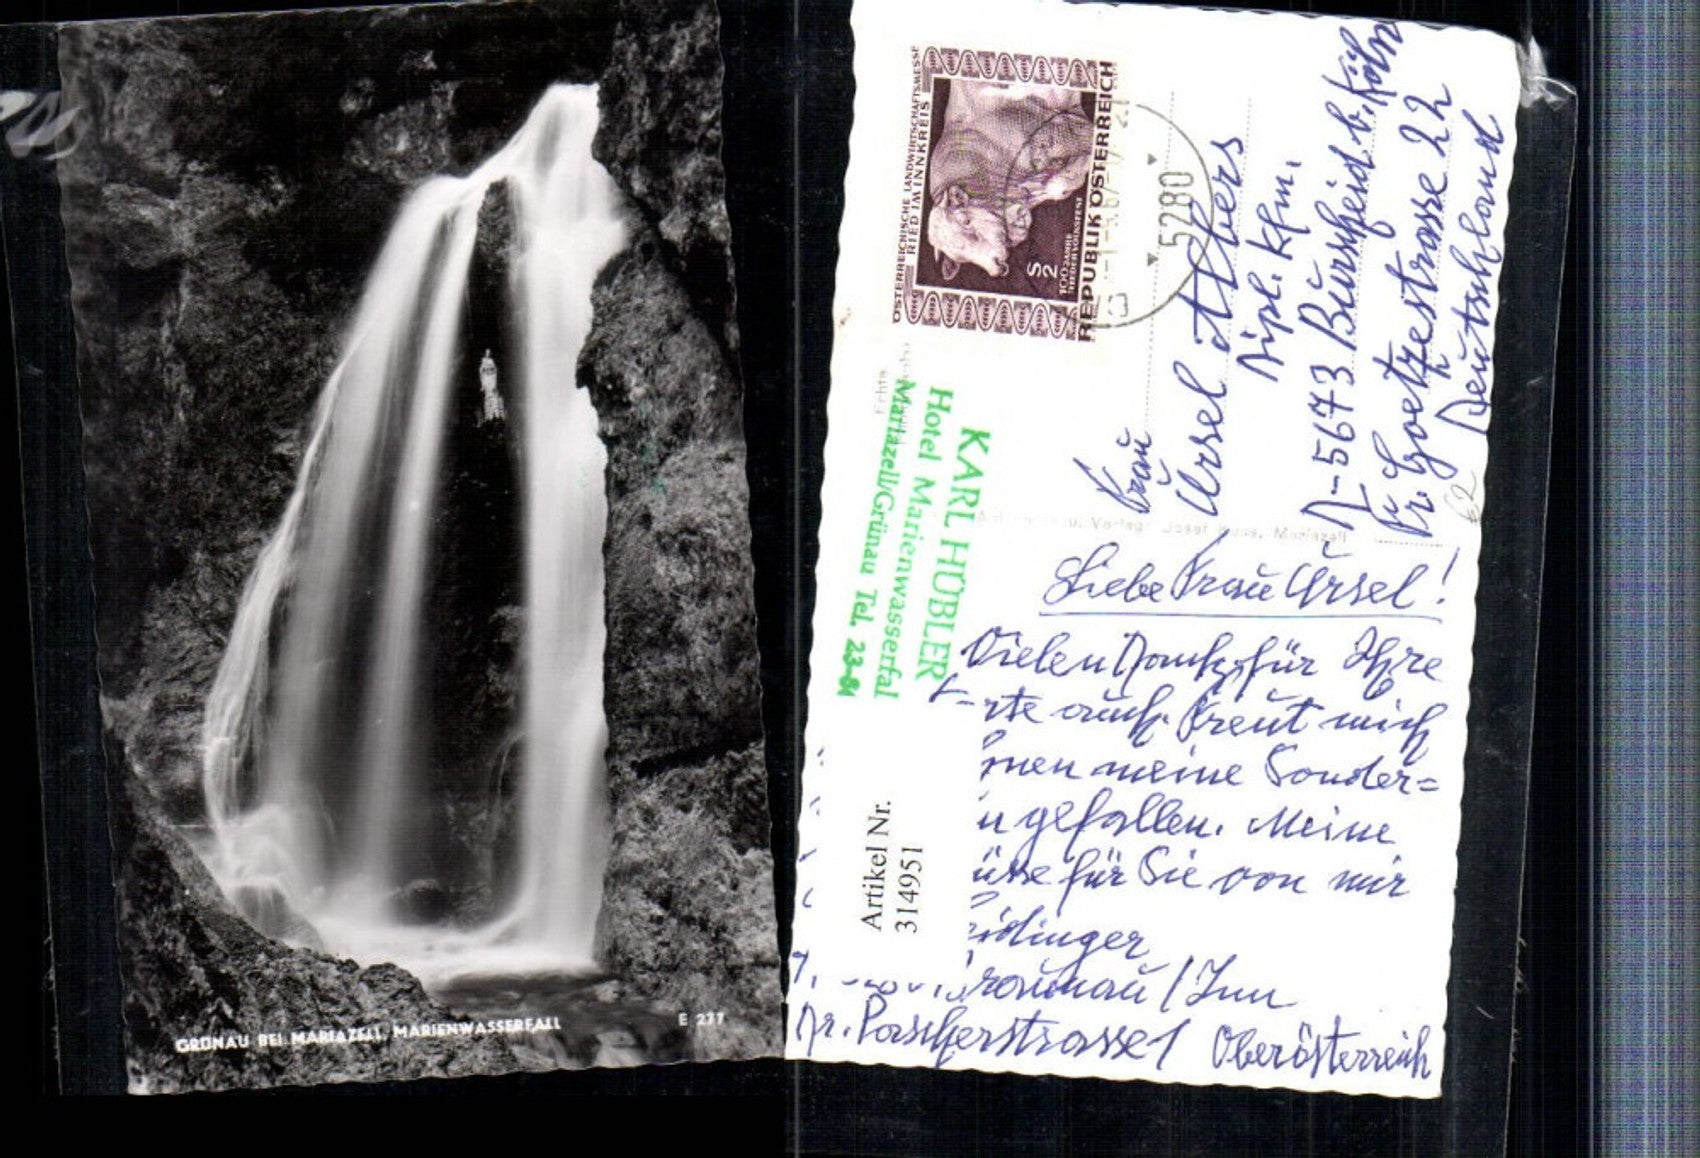 GRÜNAU BEI MARIAZELL, MARIENWASSERFALL
E 277
ÖSTERREICHISCHE LANDWIRTSCHAFTSMESSE
RIED IM INNKREIS
S 2
100 JAHRE
REPUBLIK ÖSTERREICH
5280
Echte
KARL HÜBLER
Hotel Marienwasserfal
Mariazell/Grünau Tel. 23-81
Frau
Ursel Albers
Dipl. Kfm.
D-5673 Burscheid b. Köln
Goetzestrasse 22
Deutschland
u. Verlag: Josef Kuss, Mariazell
Liebe Frau Ursel!
Vielen Dank, für Ihre
rte auch. Freut mich
nen meine Sonder=
n gefallen. Meine
üsse für Sie von mir
idinger
Braunau / Inn
Dr. Pascherstrasse 1 Oberösterreich
Artikel Nr.
314951